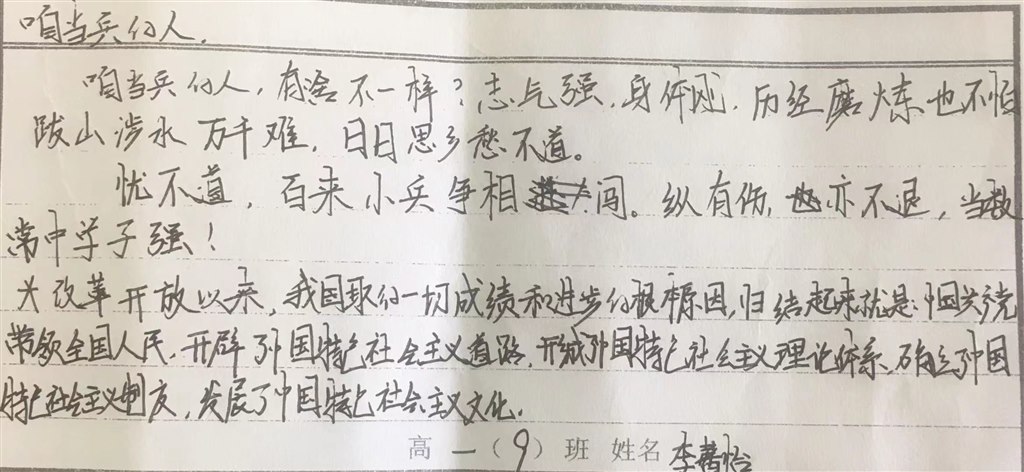 咱当兵的人.
咱当兵的人，有啥不一样？志气强，身体刚，历经磨炼也不怕
跋山涉水万千难，日日思乡愁不道。
忧不道，百来小兵争相闯。纵有伤，亦不退，当教
常中学子强！
改革开放以来，我国取的一切成绩和进步的根本原因，归结起来就是：中国共产党
带领全国人民，开辟了中国特色社会主义道路，形成了中国特色社会主义理论体系、确立了中国
特色社会主义制度，发展了中国特色社会主义文化.
高一（9）班 姓名 李 怡